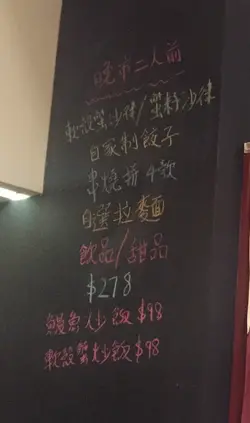 晚市二人前
軟殼蟹沙律/蟹籽沙律
自家制餃子
串燒拼4款
自選拉麵
飲品/甜品
$278
鰻魚炒飯$98
軟殼蟹炒飯$98